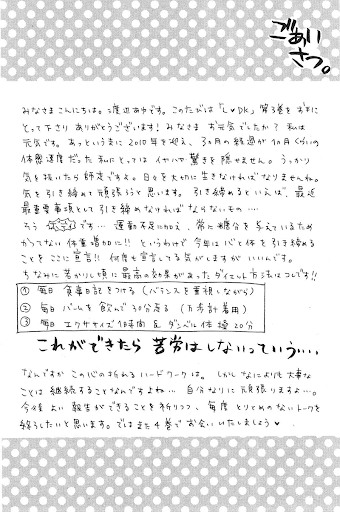 ごあい
さつ。
みなさまこんにちは。渡辺あゆです。このたびは「L♥DK」第3巻をお手に
とって下さりありがとうございます！みなさまお元気でしたか？私は
元気です。あっという間に2010年を迎え、3ヵ月の経過が10日くらいの
体感速度だった私にとってはイヤハヤ驚きを隠せません。うっかり
気を抜いたら師走ですよ。日々を大切に生きなければなりませんね。
気を引き締めて頑張ろうと思います。引き締めるといえば、最近
最重要事項として引き締めなければならないもの…
そう です… 運動不足に加え、常に糖分を与えているため
かつてない体重増加に!!というわけで今年は心と体を引き締める
ことをここに宣言!!何度も宣言してる気がしますがいいんです。
ちなみに若かりし頃に最高の効果があったダイエット方法はコレです!!
① 毎日 食事日記をつける（バランスを重視しながら）
② 毎日 バームを飲んで30分走る（万歩計着用）
③ 毎日 エクササイズ1時間 & ダンベル体操20分
これができたら苦労はしないっていう...
なんですかこの心の折れるハードワークは。しかしなにより大事な
ことは継続することなんですよね… 自分なりに頑張りますよ…。
今後よい報告ができることを祈りつつ、毎度とりとめのないトークを
終ろうしたいと思います。ではまた4巻でお会いしましょう♥